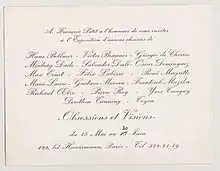 A. François Petit a l'honneur de vous inviter
à l'Exposition d'œuvres choisies de
Hans Bellmer - Victor Brauner - Giorgio de Chirico
Salvador Dali - Oscar Dominguez
Max Ernst - Félix Labisse - René Magritte
Gustave Moreau - Francis Picabia
Richard Oelze - Pierre Roy - Yves Tanguy
Dorothea Tanning -
Obsessions et Visions
du 25 Mai au Juin
122, bd Haussmann, Paris - Tel.